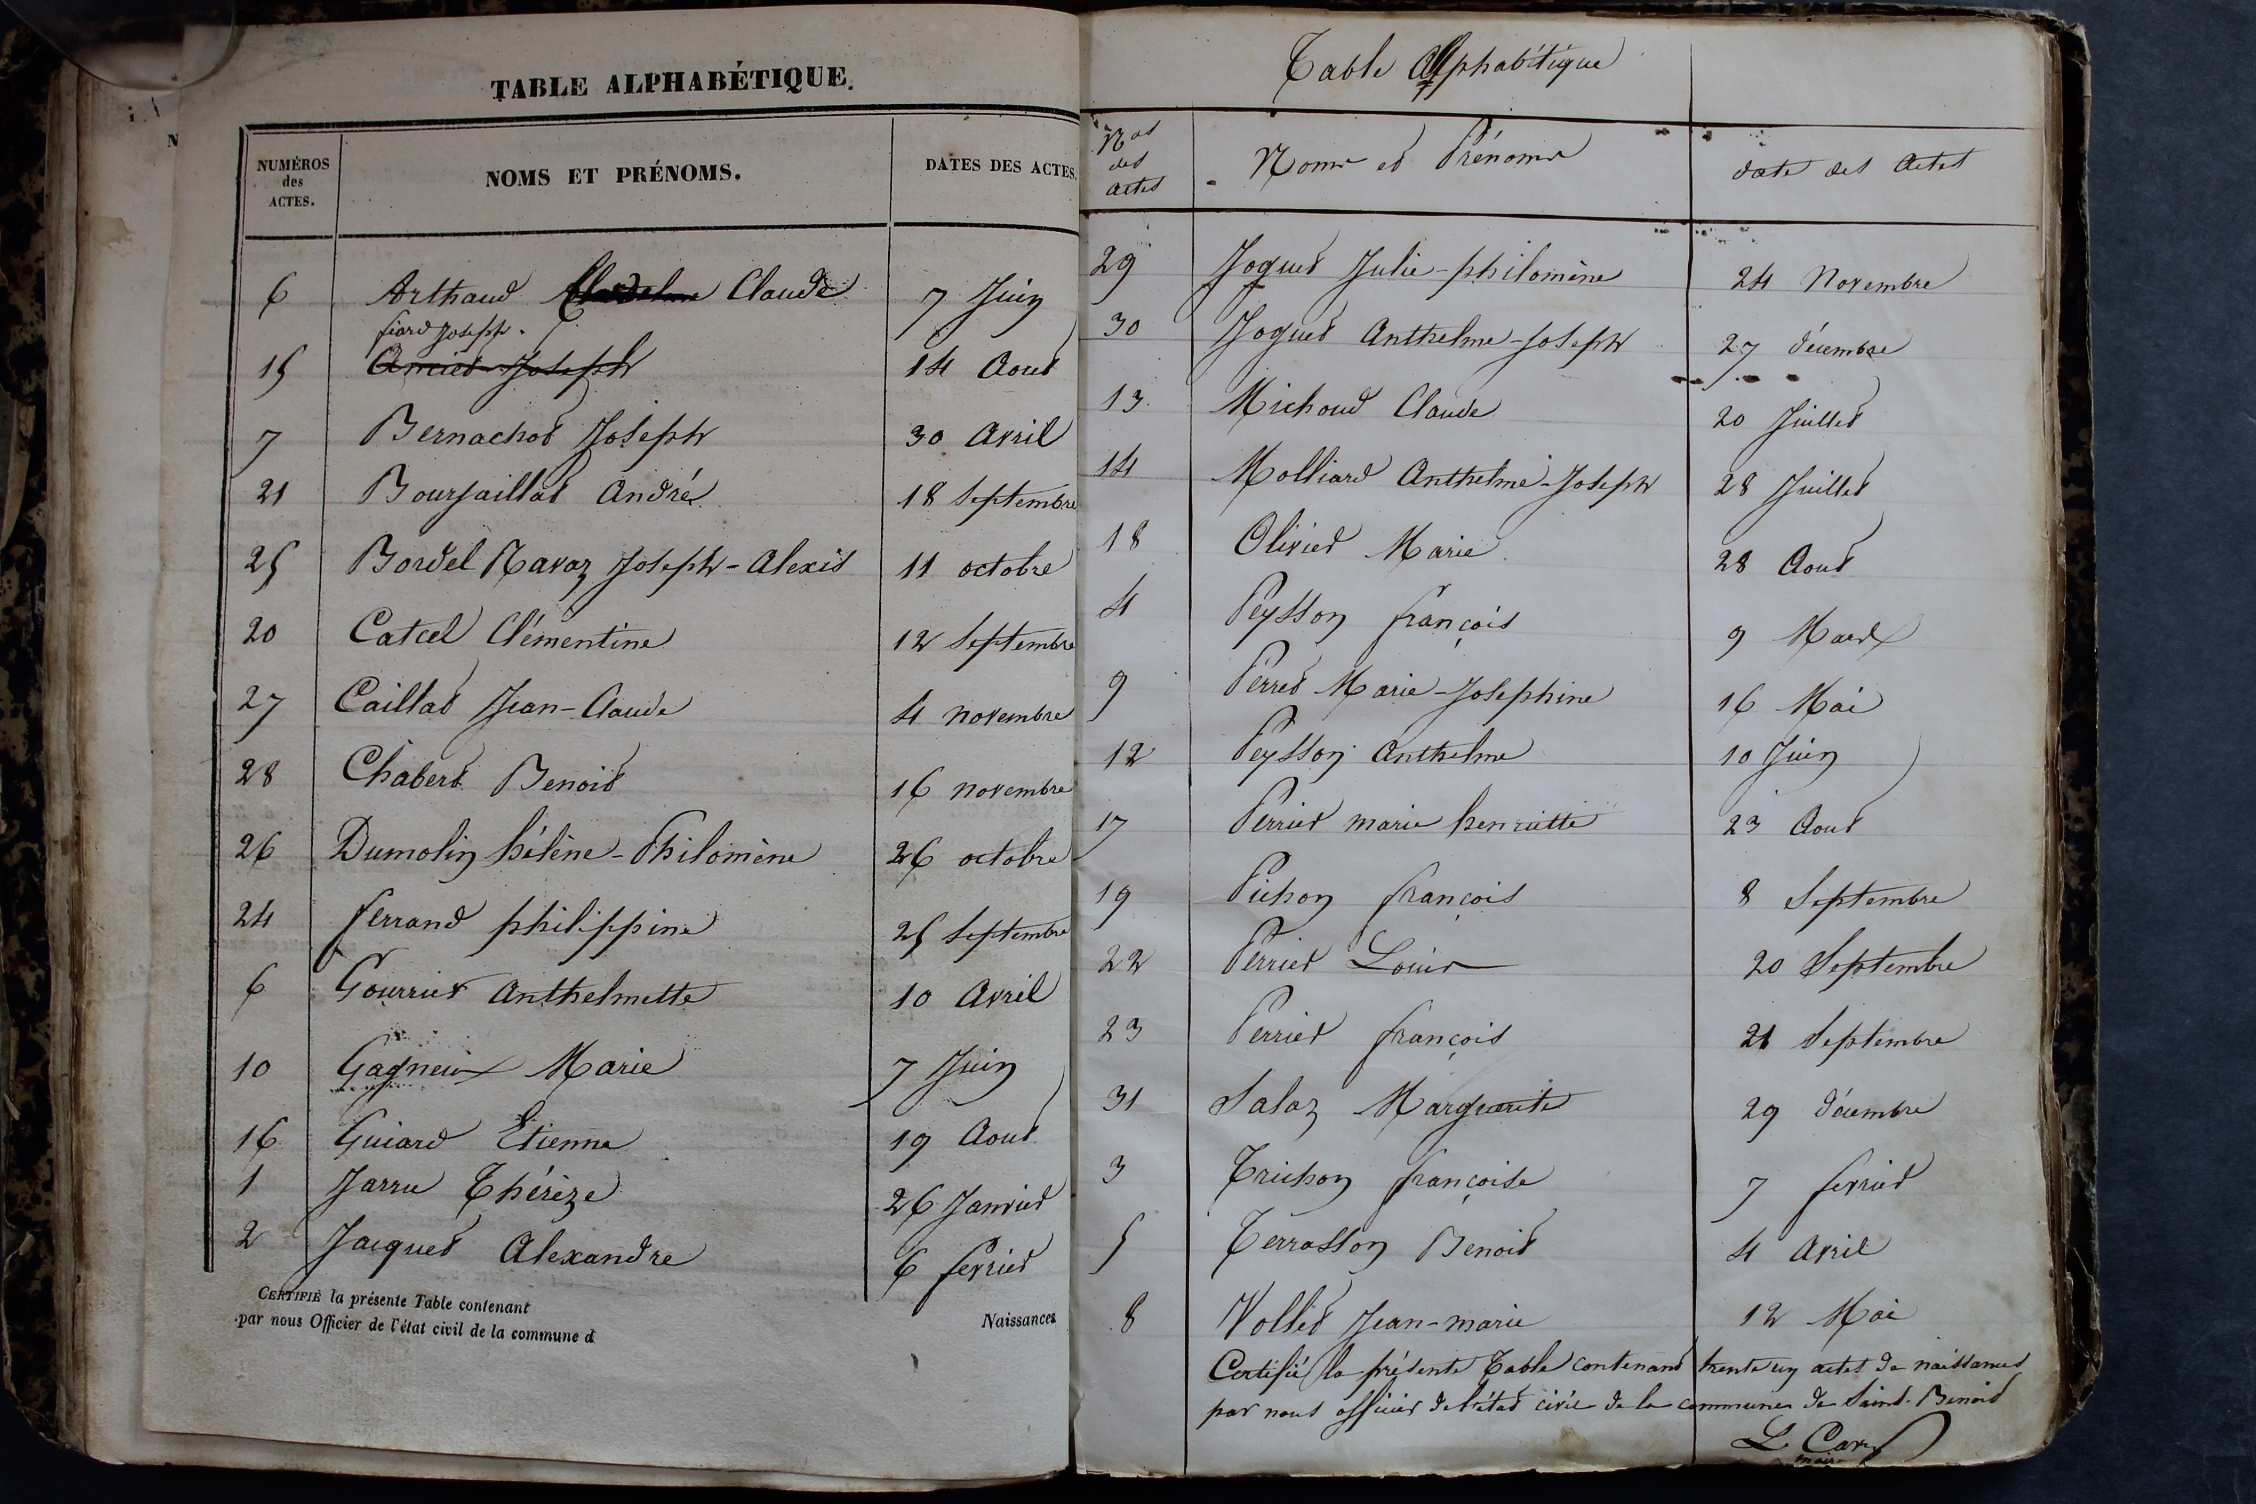 TABLE ALPHABÉTIQUE.
NUMÉROS des ACTES. NOMS ET PRÉNOMS. DATES DES ACTES.
6 Arthaud Claude 7 Juin
fiard Joseph.
15 Joseph 14 Aout
7 Bernachot Joseph 30 Avril
21 Boursaillat André 18 Septembre
25 Bordel Navaz Joseph-Alexis 11 octobre
20 Catcel Clémentine 12 Septembre
27 Caillat Jean-Claude 4 novembre
28 Chabert Benoit 16 novembre
26 Dumolin hélène-Philomène 26 octobre
24 ferrand philippine 25 Septembre
6 Gourrier Anthelmette 10 Avril
10 Gagneux Marie 7 Juin
16 Guiard Etienne 19 Aout
1 Jarru Thérèze 26 Janvier
2 Jacquet Alexandre 6 fevrier
CERTIFIÉ la présente Table contenant Naissances
par nous Officier de l'état civil de la commune d
Table Alphabétique
Nos des actes Noms et Prénoms date des Actes
29 Joguet Julie-philomène 24 Novembre
30 Joguet Anthelme-Joseph 27 décembre
13 Michoud Claude 20 Juillet
14 Molliard Anthelme-Joseph 28 Juillet
18 Olivier Marie 28 Aout
4 Peysson françois 9 Mars
9 Perret Marie-Josephine 16 Mai
12 Peysson Anthelme 10 Juin
17 Perrier marie henriette 23 Aout
19 Pichon françois 8 Septembre
22 Perrier Louis 20 Septembre
23 Perrier françois 21 Septembre
31 Salaz Marguerite 29 décembre
3 Trichon françoise 7 fevrier
5 Terrasson Benoit 4 Avril
8 Vollet Jean-marie 12 Mai
Certifié la présente Table contenant trente un actes de naissances
par nous officier de l'état civil de la commune de Saint-Benoit
maire